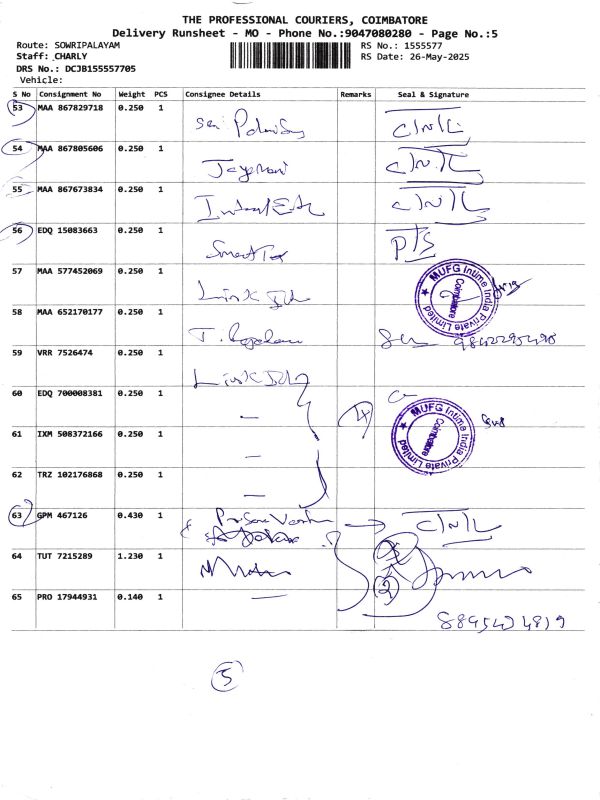 THE PROFESSIONAL COURIERS, COIMBATORE
Delivery Runsheet - MO - Phone No.:9047080280 - Page No.:5
Route: SOWRIPALAYAM
RS No.: 1555577
Staff: CHARLY
RS Date: 26-May-2025
DRS No.: DCJB155557705
Vehicle:
S No Consignment No Weight PCS Consignee Details Remarks Seal & Signature
53 MAA 867829718 0.250 1
C/N/L
54 MAA 867805606 0.250 1
C/N/L
55 MAA 867673834 0.250 1
C/N/L
56 EDQ 15083663 0.250 1
PTS
57 MAA 577452069 0.250 1
Link
MUFG Intime India Private Limited
Coimbatore
58 MAA 652170177 0.250 1
59 VRR 7526474 0.250 1
Link
60 EDQ 700008381 0.250 1
4
MUFG Intime India Private Limited
Coimbatore
61 IXM 508372166 0.250 1
62 TRZ 102176868 0.250 1
63 GPM 467126 0.430 1
C/N/L
64 TUT 7215289 1.230 1
2
65 PRO 17944931 0.140 1
5